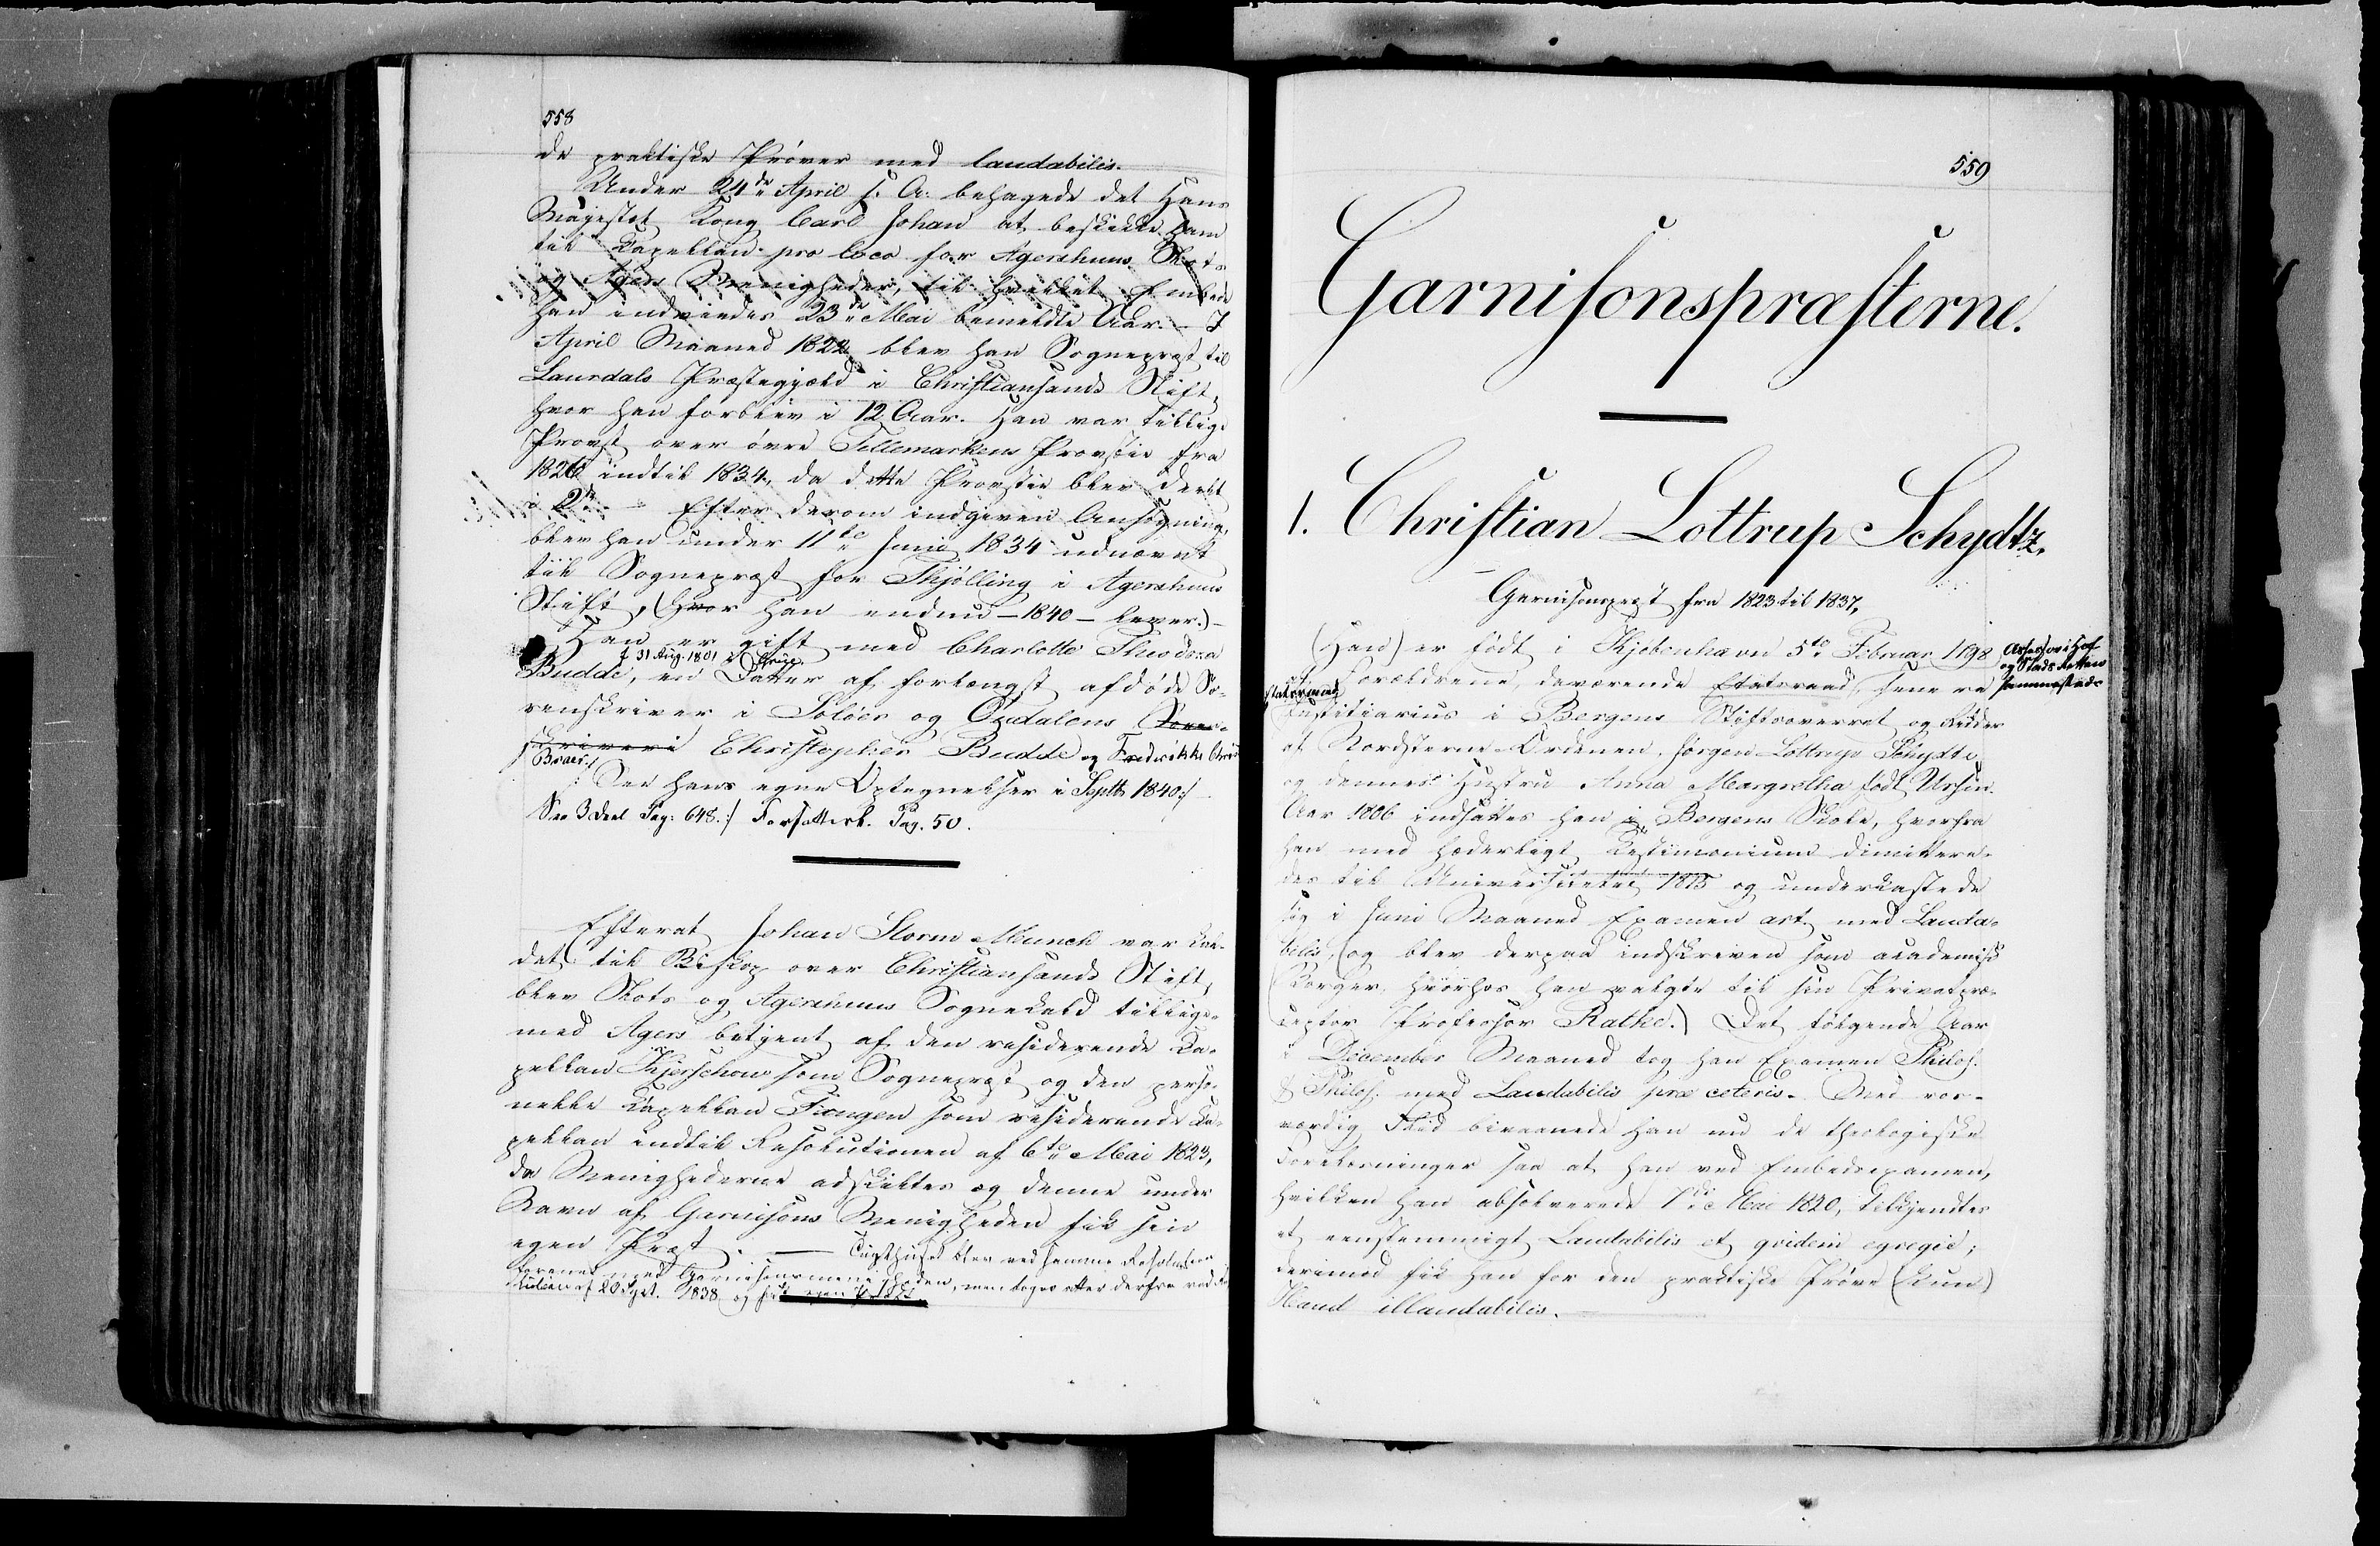 558
de praktiske Prøver med laudabilis.
Under 24de April s. A. behagede det Hans
Majestæt Kong Carl Johan at beskikke ham
til Kapellan pro loco for Agershuus Slots
og Agers Menigheder, til hvilket Embede
han indviedes 23de Mai bemeldte Aar. – I
April Maaned 1822 blev han Sognepræst til
Laurdals Præstegjæld i Christiansands Stift,
hvor han forblev i 12 Aar. Han var tillige
Provst over øvre Tellemarkens Provstie fra
1826 indtil 1834, da dette Provstie blev deelt
i 2de. – Efter derom indgiven Ansøgning
blev han under 11te Juni 1834 udnævnt
til Sognepræst for Thjølling i Agershuus
Stift, (hvor han endnu – 1840 – lever.) –
Han er gift med Charlotte Theodora
f. 31 Aug. 1801
Budde, en Datter af forlængst afdøde So-
renskriver i Soløer og Østdalens Soren-
skriveri Christopher Budde og Fredrikke
Se hans egne Optegnelser i Septbr 1840
See 3 Deel Pag: 648. Forfatterl. Pag. 50.
Efterat Johan Storm Munch var kal-
det til Biskop over Christiansands Stift,
blev Slots og Agershuus Sognekald tillige-
med Agers betjent af den residerende Ka-
pellan Kjerschow som Sognepræst og den perso-
nelle Kapellan Tiongen som residerende Ka-
pellan indtil Resolutionen af 6te Mai 1823,
da Menighederne adskiltes og denne under
Navn af Garnisons Menigheden fik sin
egen Præst. — Tugthuset blev ved samme Resolution
forenet med Garnisonsmenigheden, men toges atter derfra ved
af 20 Sept. 1838 og fik egen Præst.
559
Garnisonspræsterne.
1. Christian Lottrup Schydtz.
Garnisonspræst fra 1823 til 1837,
(Han) er født i Kjøbenhavn 5te Februar 1798
Assessor i Hof
og Stads Retten
sammesteds
Forældrene, daværende Etatsraad, senere
Justitiarius i Bergens Stiftsoverret og Ridder
af Nordstjerne-Ordenen, Jørgen Lottrup Schydtz
og dennes Hustru Anna Margretha født Ursin.
Aar 1806 indsattes han i Bergens Skole, hvorfra
han med hæderligt Testimonium dimittere-
des til Universitetet 1815 og underkastede
sig i Juni Maaned Examen art. med Lauda-
bilis, (og blev derpaa indskreven som academisk
Borger, hvorhos han valgte til sin Privatpræ-
ceptor Professor Rathke.) Det følgende Aar
i December Maaned tog han Examen Philol.
& Philos. med Laudabilis præ ceteris. Med roes-
værdig Flid bivaanede han nu de theologiske
Forelæsninger saa at han ved Embedsexamen,
hvilken han absolverede 1de Mai 1820, tilkjendtes
et eenstemmigt Laudabilis et qvidem egregie;
derimod fik han for den praktiske Prøve (kun)
Haud illaudabilis.